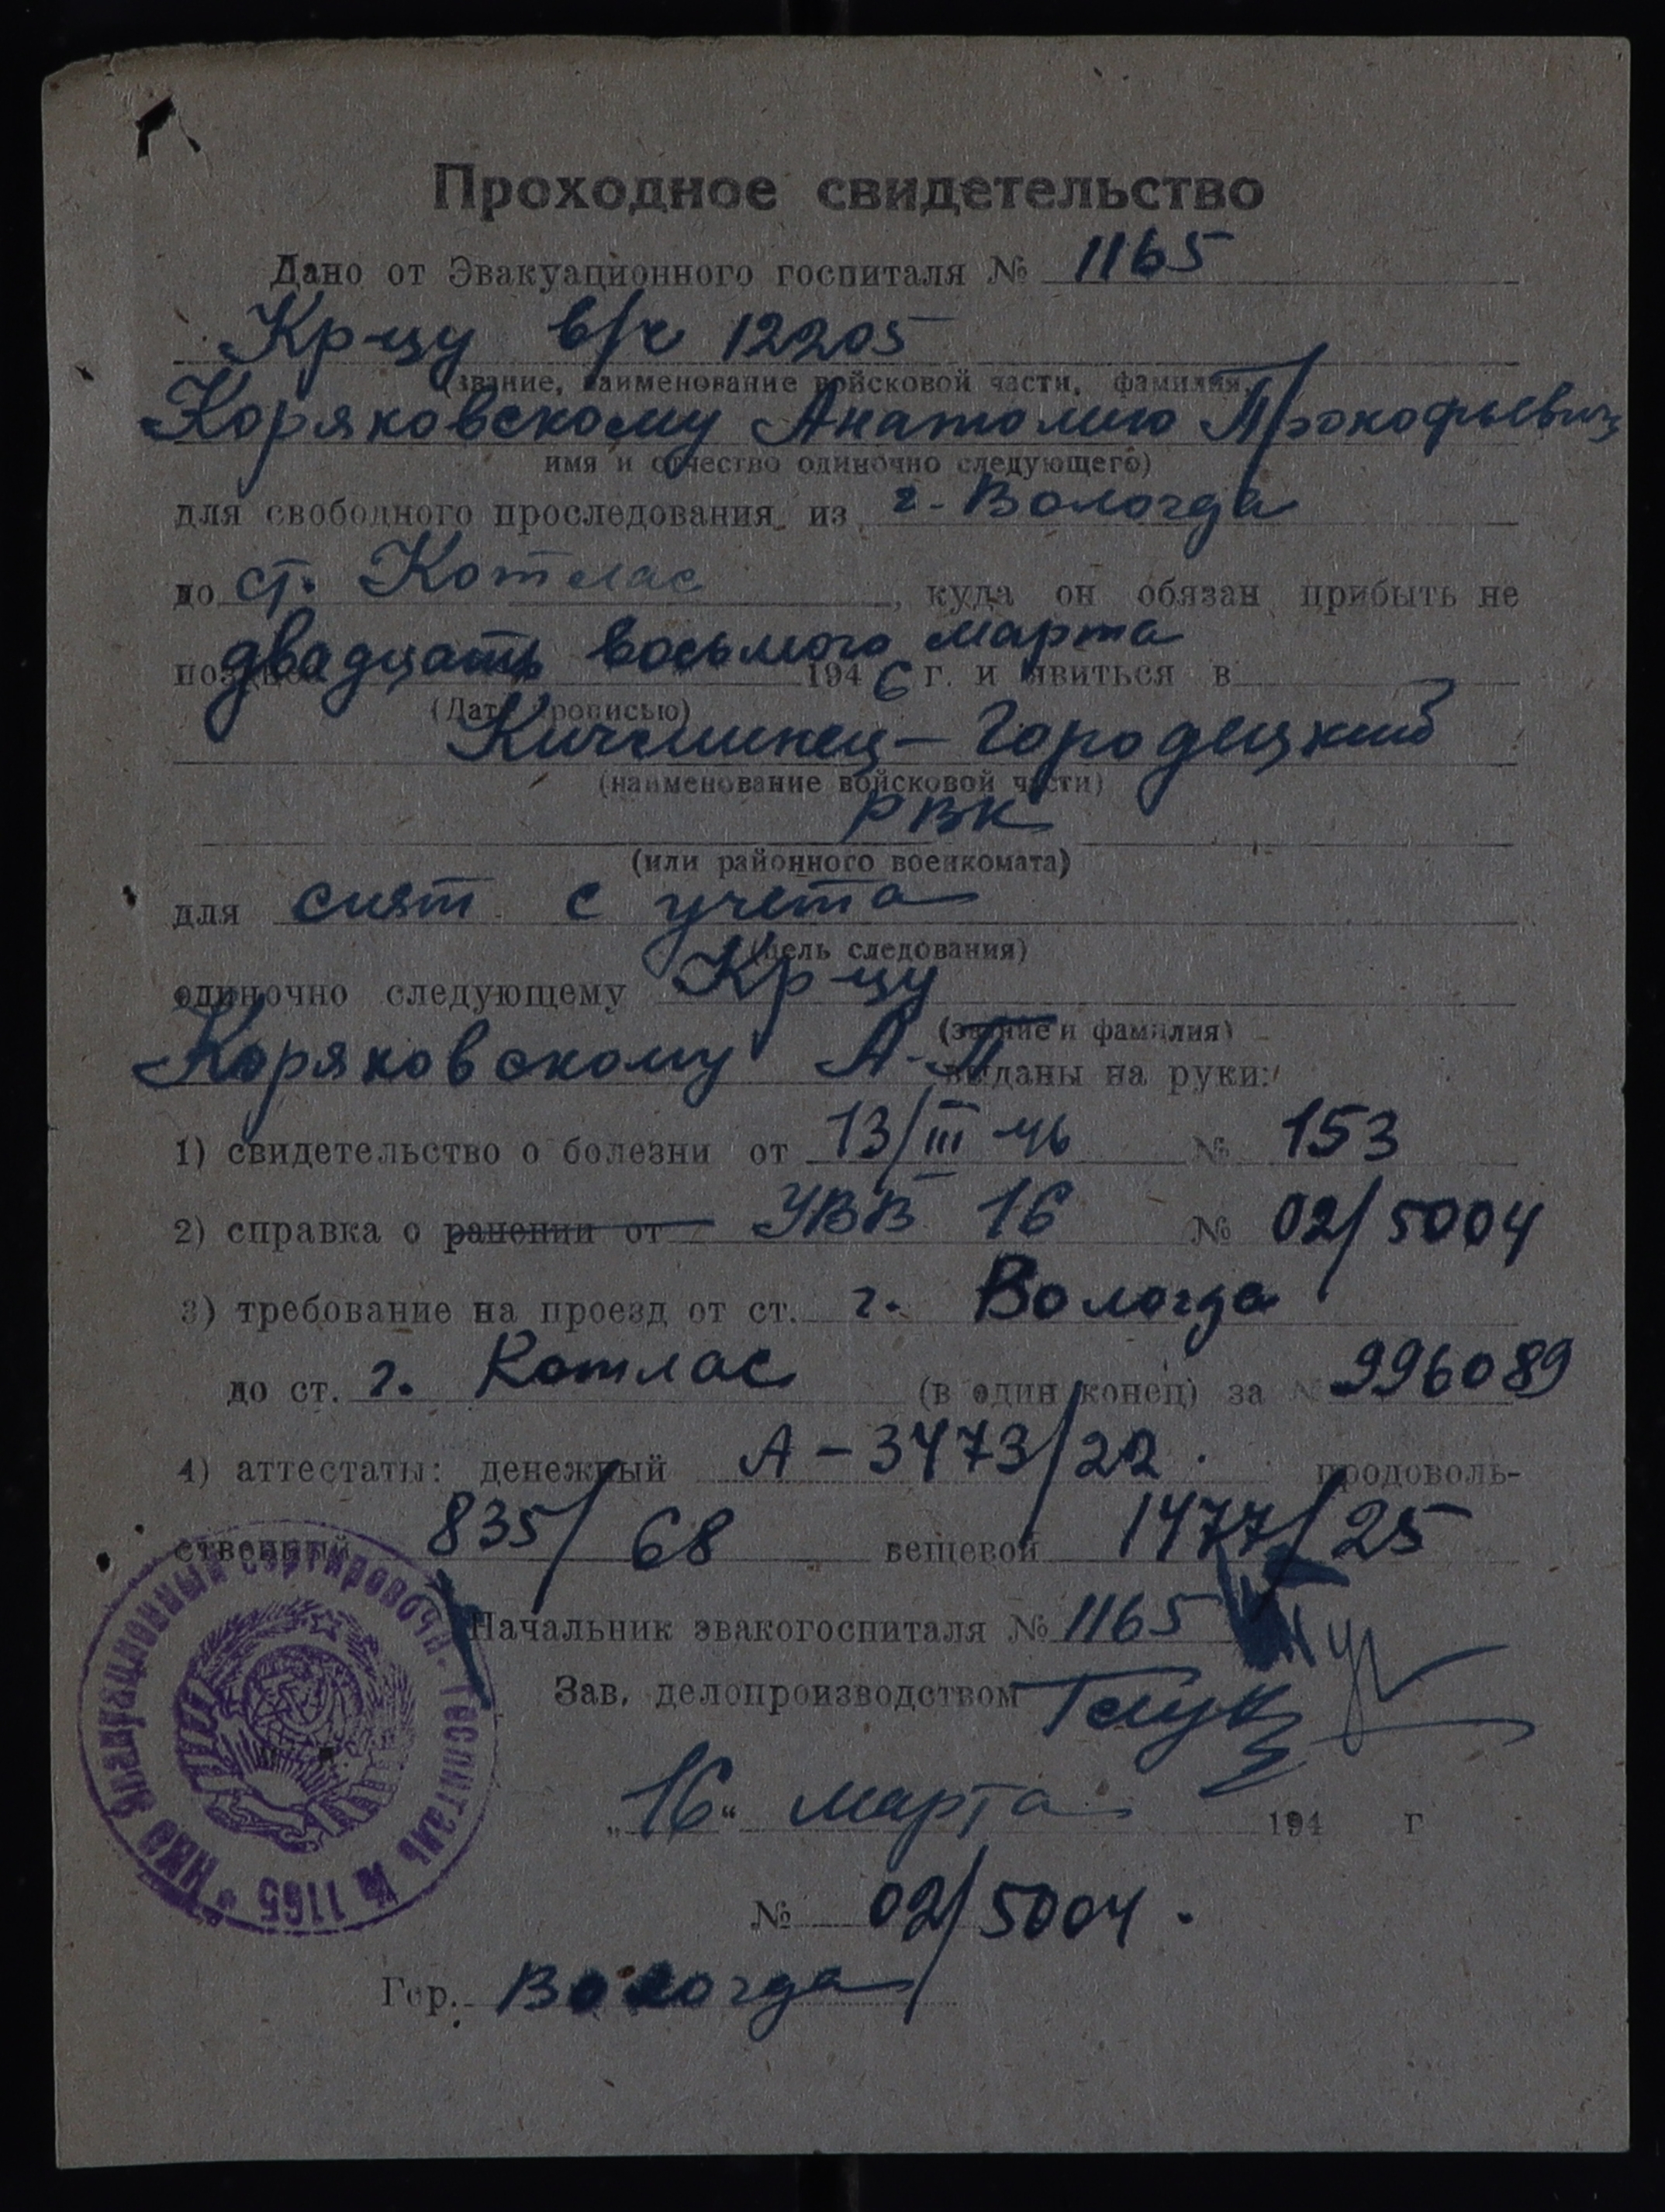 Проходное свидетельство
Дано от Эвакуационного госпиталя № 1165
Кр-цу в/ч 12205
(звание, наименование войсковой части, фамилия,
Коряковскому Анатолию Прокофьевич
имя и отчество одиночно следующего)
для свободного проследования из г. Вологда
до ст. Котлас, куда он обязан прибыть не
позднее двадцать восьмого марта 1946 г. и явиться в
(Дата прописью)
Кичменец-Городецкий
(наименование войсковой части)
РВК
(или районного военкомата)
для снят с учета
(цель следования)
одиночно следующему Кр-цу
(звание и фамилия)
Коряковскому А.П. выданы на руки:
1) свидетельство о болезни от 13/III-46 № 153
2) справка о ранении от УВВ 16 № 02/5004
3) требование на проезд от ст. г. Вологда
до ст. г. Котлас (в один конец) за № 996089
4) аттестаты: денежный А-3473/22. продоволь-
ственный 835/68 вещевой 1477/25
Начальник эвакогоспиталя № 1165
Зав. делопроизводством
„16“ марта 194 г
№ 02/5004.
Гор. Вологда
НКО Эвакуационный сортировочн. госпиталь № 1165